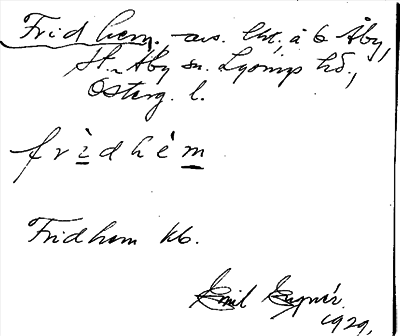 Fridhem. avs. lht, å 6 Åby,
St. Åby sn. Lysings hd.,
Österg. l.
frìdhé̀m
Fridhem kb.
Emil
1929.